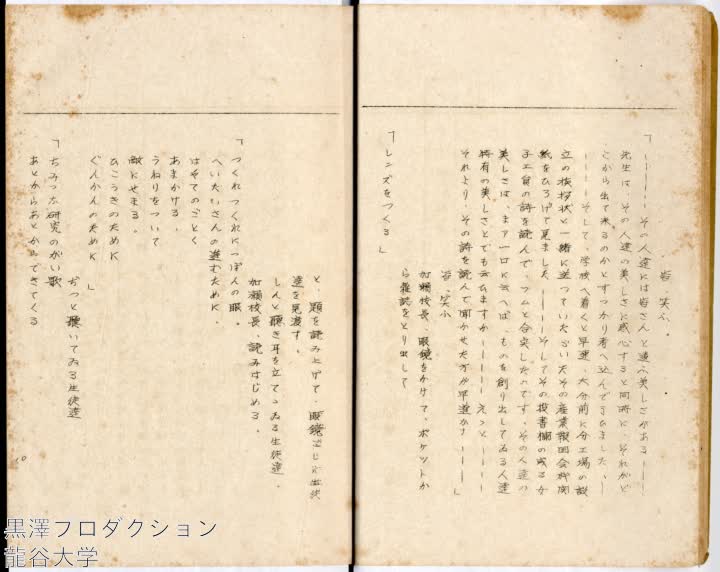 皆、笑ふ。
「――――その人達には皆さんと違ふ美しさがある――
先生は、その人達の美しさに感心すると同時に、それがど
こから出て来るのかとすつかり考へ込んでゐました、――
――――そして、学校へ着くと早速、大分前に分工場の設
立の挨拶状と一緒に送つていたゞいたその産業報国会機関
紙をひろげて見ました――――そしてその投書欄の或る女
子工員の詩を読んで、フムと合突したのです。その人達の
美しさは、まァ一口に云へば、ものを創り出してゐる人達
特有の美しさとでも云ひますか――――えゝと――――
それより、その詩を読んで聞かせた方が早道かナ――――」
皆、笑ふ
加瀬校長、眼鏡をかけて、ポケットか
ら雑誌をとり出して
「レンズをつくる」
と、題を読み上げて、眼鏡ごしに生徒
達を見渡す。
しんと聴き耳を立てゝゐる生徒達。
加瀬校長、読みはじめる。
「つくれつくれにつぽんの眼。
へいたいさんの進むために、
はそてのごとく
あまかける。
うねりをついて
敵にせまる。
ひこうきのために
ぐんかんのために」
ぢつと聴いてゐる生徒達
「ちみつな研究のがい歌
あとからあとからできてくる
10
黒澤プロダクション
龍谷大学